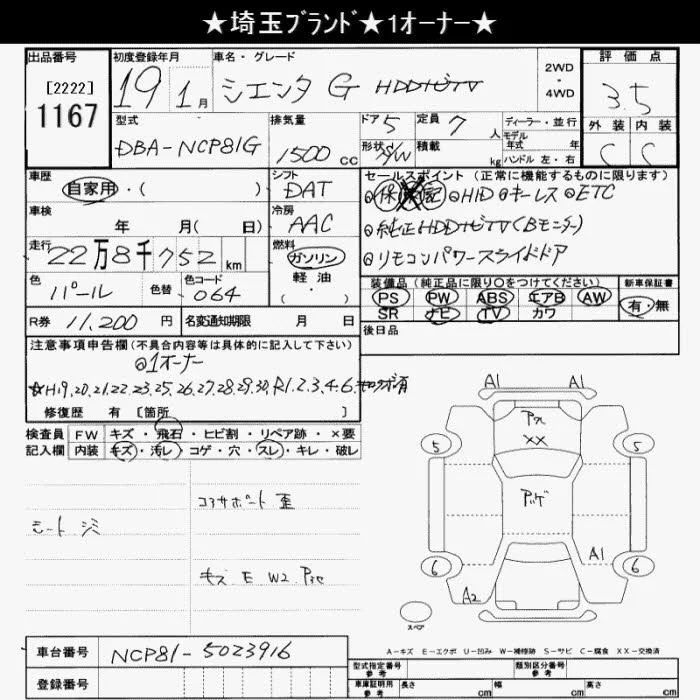 ★埼玉ﾌﾞﾗﾝﾄﾞ★1オーナー★
出品番号 初度登録年月 車名・グレード 2WD・4WD 評価点
[2222] 1167 19年 1月 シエンタ G HDDナビTV 3.5
型式 排気量 ドア 5 定員 7人 ディーラー・並行 外装 内装
モデル年式 年
DBA-NCP81G 1500cc 形状 S/W 積載 kg ハンドル 左・右 C C
車歴 シフト セールスポイント (正常に機能するものに限ります)
自家用・( ) DAT ◎保 ◎HID ◎キーレス ◎ETC
車検 冷房 ◎純正HDDナビTV(Bモニター)
年 月( 日) AAC
走行 燃料 ◎リモコンパワースライドドア
22万8千752km ガソリン・軽油・( )
色 色替 色コード 装備品 (純正品に限り○をつけてください) 新車保証書
パール 064 PS PW ABS エアB AW 有・無
SR ナビ TV カワ
R券 11,200円 名変通知期限 月 日 後日品
注意事項申告欄(不具合内容等は具体的に記入して下さい)
◎1オーナー
☆H19,20,21,22,23,25,26,27,28,29,30,R1,2,3,4,6,キロク簿有
修復歴 有 [箇所 ]
検査員記入欄 FW キズ・飛石・ヒビ割・リペア跡・×要
内装 キズ・汚レ・コゲ・穴・スレ・キレ・破レ
コアサポート 歪
シートシミ
キズ E W2
A1 A1
XX
5 5
A1
6 6
A2
スペア
A-キズ E-エクボ U-凹み W-補修跡 S-サビ C-腐食 XX-交換済
車台番号 NCP81-5023916
登録番号
型式指定番号 参考 類別区分番号 参考
車庫証明用 参考 長さ cm 幅 cm 高さ cm